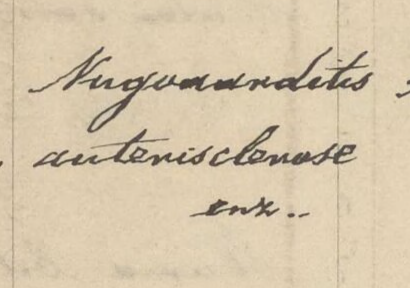 Nugoaarditis
auterisclerose
enz..